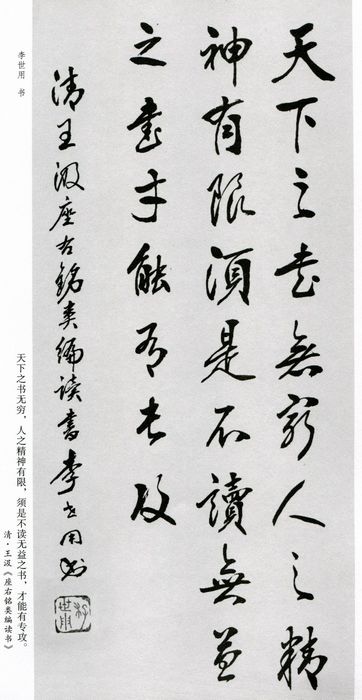 天下之書無窮人之精
神有限須是不讀無益
之書才能有专攻
清王汲座右銘类编读書李世用书
李世用 书
天下之书无穷，人之精神有限，须是不读无益之书，才能有专攻。
清·王汲《座右铭类编读书》